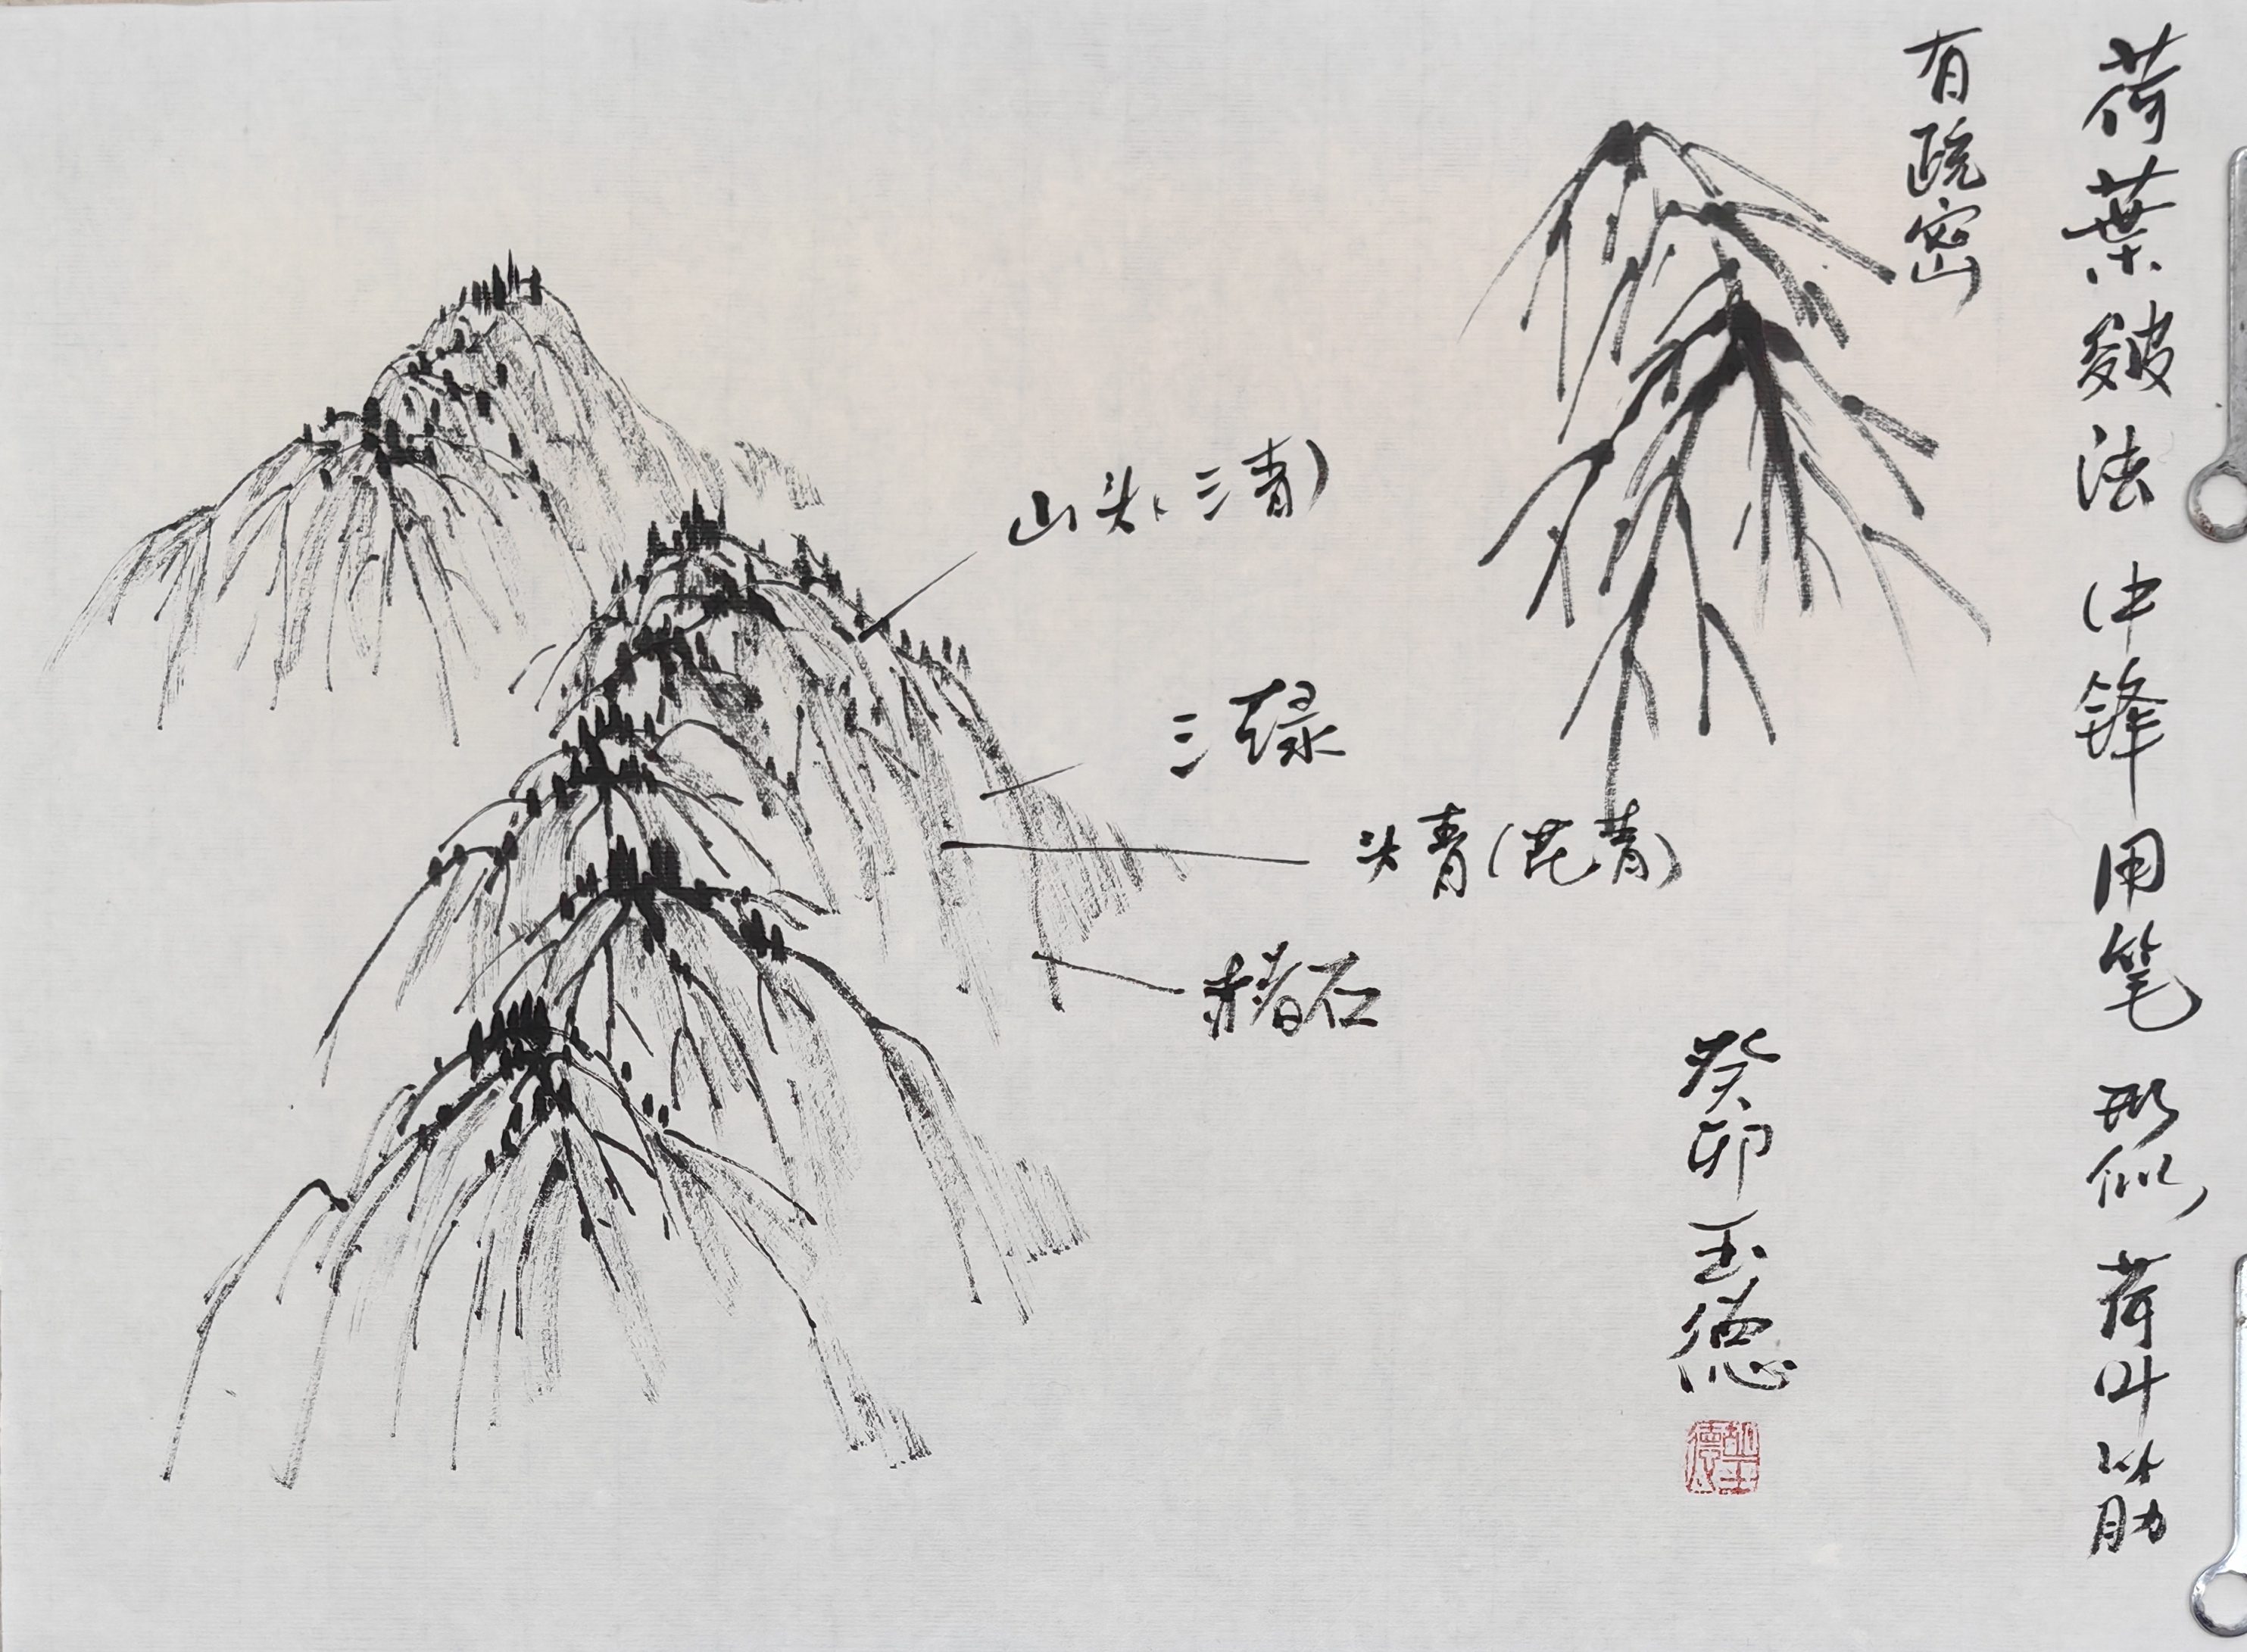 荷葉皴法 中锋用笔 形似荷叶筋
有疏密
山头(三青)
三绿
头青(花青)
赭石
癸卯玉德